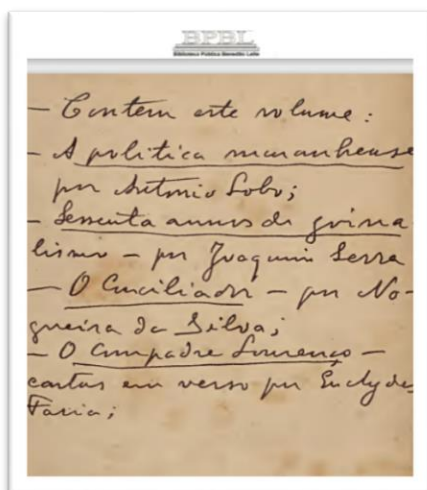 BPBL
Biblioteca Pública Benedito Leite
— Contem este volume:
— A politica maranhense
por Antonio Lobo;
— Sessenta annos de jorna
lismo — por Joaquim Serra
— O Conciliador — por No-
gueira da Silva;
— O Compadre Lourenço —
cartas em verso por Euclydes
Faria;